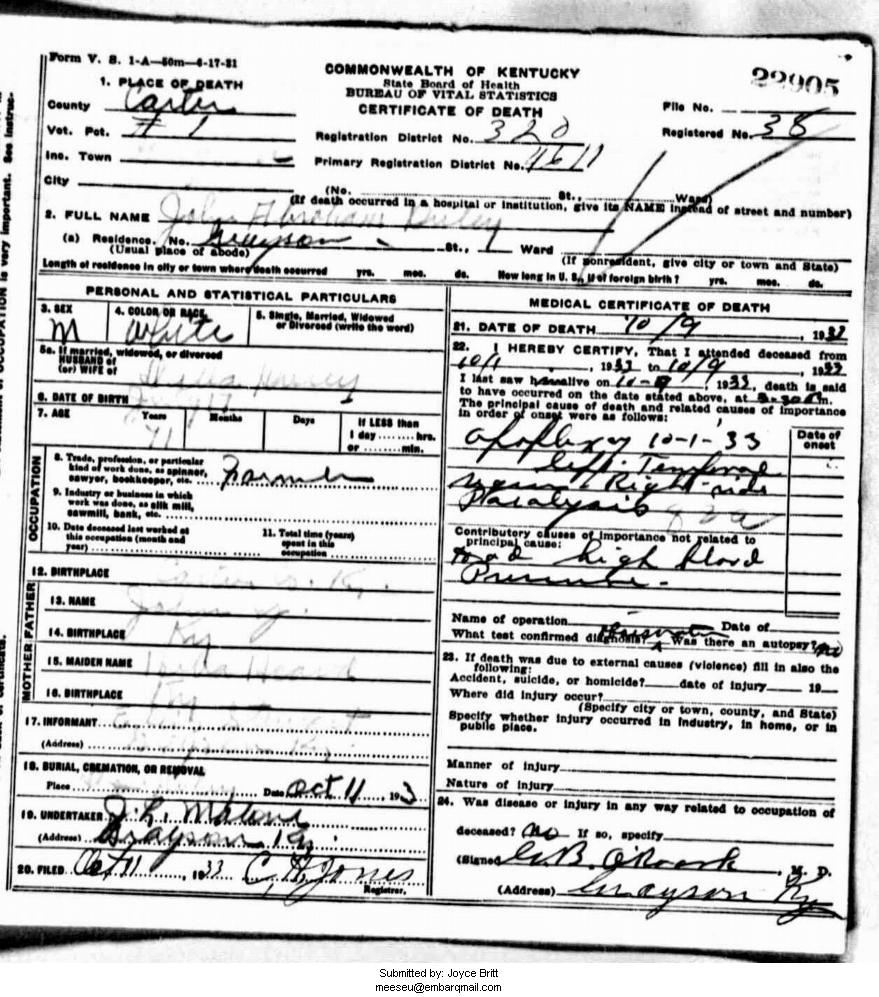 Form V. S. 1-A—50m—6-17-31
22905
COMMONWEALTH OF KENTUCKY
State Board of Health
BUREAU OF VITAL STATISTICS
CERTIFICATE OF DEATH
1. PLACE OF DEATH
County Carter
Vot. Pct. # 1
Inc. Town
City
File No.
Registration District No. 320
Registered No. 38
Primary Registration District No.
(No. St., Ward)
(If death occurred in a hospital or institution, give its NAME instead of street and number)
2. FULL NAME John Abraham
(a) Residence. No. Grayson St., Ward
(Usual place of abode) (If nonresident, give city or town and State)
Length of residence in city or town where death occurred yrs. mos. ds. How long in U. S., if of foreign birth? yrs. mos. ds.
PERSONAL AND STATISTICAL PARTICULARS
3. SEX M
4. COLOR OR RACE White
5. Single, Married, Widowed
or Divorced (write the word)
5a. If married, widowed, or divorced
HUSBAND of
(or) WIFE of
6. DATE OF BIRTH
7. AGE Years Months Days If LESS than
71 1 day hrs.
or min.
OCCUPATION
8. Trade, profession, or particular
kind of work done, as spinner,
sawyer, bookkeeper, etc. Farmer
9. Industry or business in which
work was done, as silk mill,
sawmill, bank, etc.
10. Date deceased last worked at
this occupation (month and
year)
11. Total time (years)
spent in this
occupation
12. BIRTHPLACE Carter Co. Ky.
FATHER
13. NAME John
14. BIRTHPLACE Ky
MOTHER
15. MAIDEN NAME Heard
16. BIRTHPLACE Ky
17. INFORMANT
(Address) Ky.
18. BURIAL, CREMATION, OR REMOVAL
Place Date Oct 11 193
19. UNDERTAKER J. L. Malone
(Address) Grayson Ky.
20. FILED Oct 11, 1933 Jones
Registrar.
MEDICAL CERTIFICATE OF DEATH
21. DATE OF DEATH 10/9, 1933
22. I HEREBY CERTIFY, That I attended deceased from
10/1, 1933 to 10/9, 1933
I last saw him alive on 10-9, 1933, death is said
to have occurred on the date stated above, at m.
The principal cause of death and related causes of importance
in order of onset were as follows:
Date of
onset
Apoplexy 10-1-'33
left Temporal
Right side
Paralysis 82a
Contributory causes of importance not related to
principal cause:
had high blood
Pressure
Name of operation Date of
What test confirmed diagnosis? Observation Was there an autopsy? no
23. If death was due to external causes (violence) fill in also the
following:
Accident, suicide, or homicide? date of injury 19
Where did injury occur?
(Specify city or town, county, and State)
Specify whether injury occurred in industry, in home, or in
public place.
Manner of injury
Nature of injury
24. Was disease or injury in any way related to occupation of
deceased? No If so, specify
(Signed) G. B. O'Roark, M. D.
(Address) Grayson Ky
Submitted by: Joyce Britt
meeseu@embarqmail.com